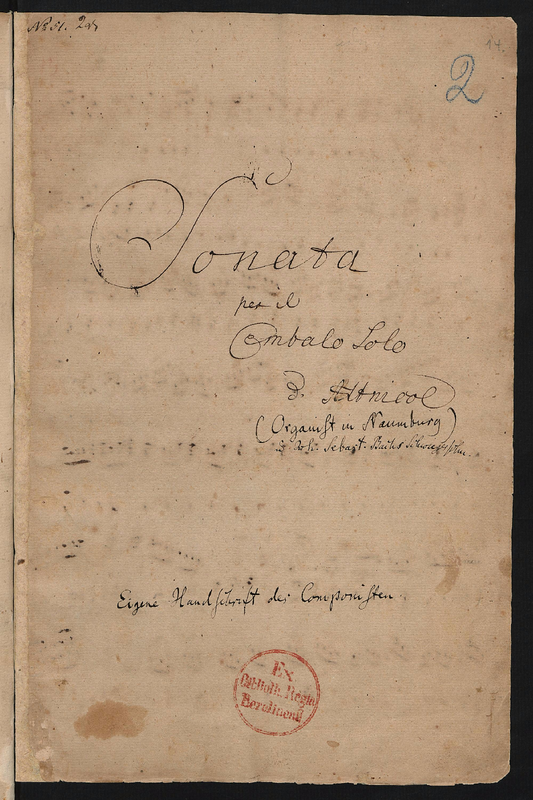 No 51.
2
14.
Sonata
per il
Cembalo Solo
d. Altnicol
(Organist in Naumburg)
Joh. Sebast. Bachs Schwiegersohn.
Eigene Handschrift des Componisten.
Ex
Biblioth. Regia
Berolinensi